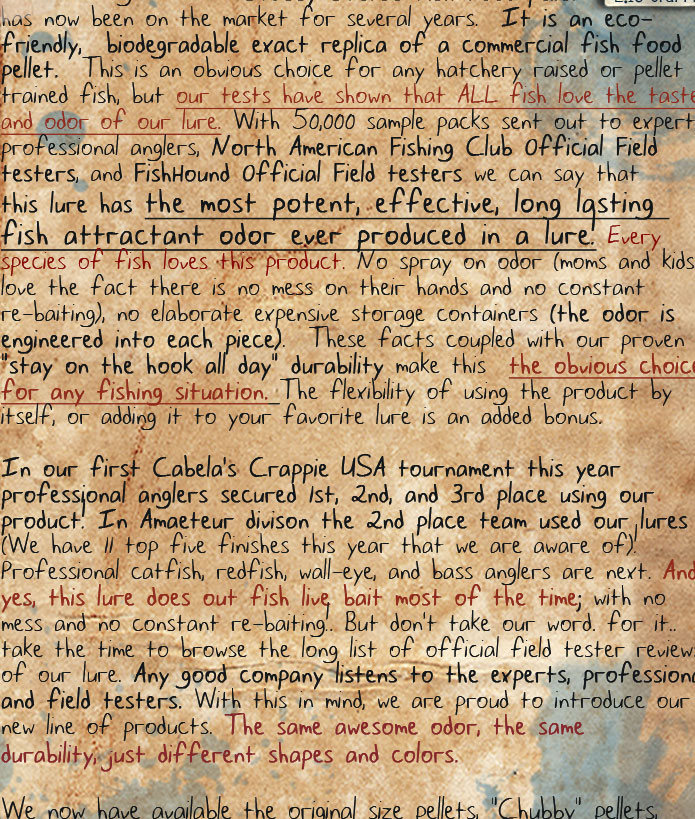 has now been on the market for several years. It is an eco-
friendly, biodegradable exact replica of a commercial fish food
pellet. This is an obvious choice for any hatchery raised or pellet
trained fish, but our tests have shown that ALL fish love the taste
and odor of our lure. With 50,000 sample packs sent out to expert
professional anglers, North American Fishing Club Official Field
testers, and FishHound Official Field testers we can say that
this lure has the most potent, effective, long lasting
fish attractant odor ever produced in a lure. Every
species of fish loves this product. No spray on odor (moms and kids
love the fact there is no mess on their hands and no constant
re-baiting), no elaborate expensive storage containers (the odor is
engineered into each piece). These facts coupled with our proven
"stay on the hook all day" durability make this the obvious choice
for any fishing situation. The flexibility of using the product by
itself, or adding it to your favorite lure is an added bonus.
In our first Cabela's Crappie USA tournament this year
professional anglers secured 1st, 2nd, and 3rd place using our
product. In Amaeteur divison the 2nd place team used our lures
(We have 11 top five finishes this year that we are aware of)!
Professional catfish, redfish, wall-eye, and bass anglers are next. And
yes, this lure does out fish live bait most of the time; with no
mess and no constant re-baiting.. But don't take our word. for it..
take the time to browse the long list of official field tester review
of our lure. Any good company listens to the experts, profession
and field testers. With this in mind, we are proud to introduce our
new line of products. The same awesome odor, the same
durability, just different shapes and colors.
We now have available the original size pellets, "Chubby" pellets,